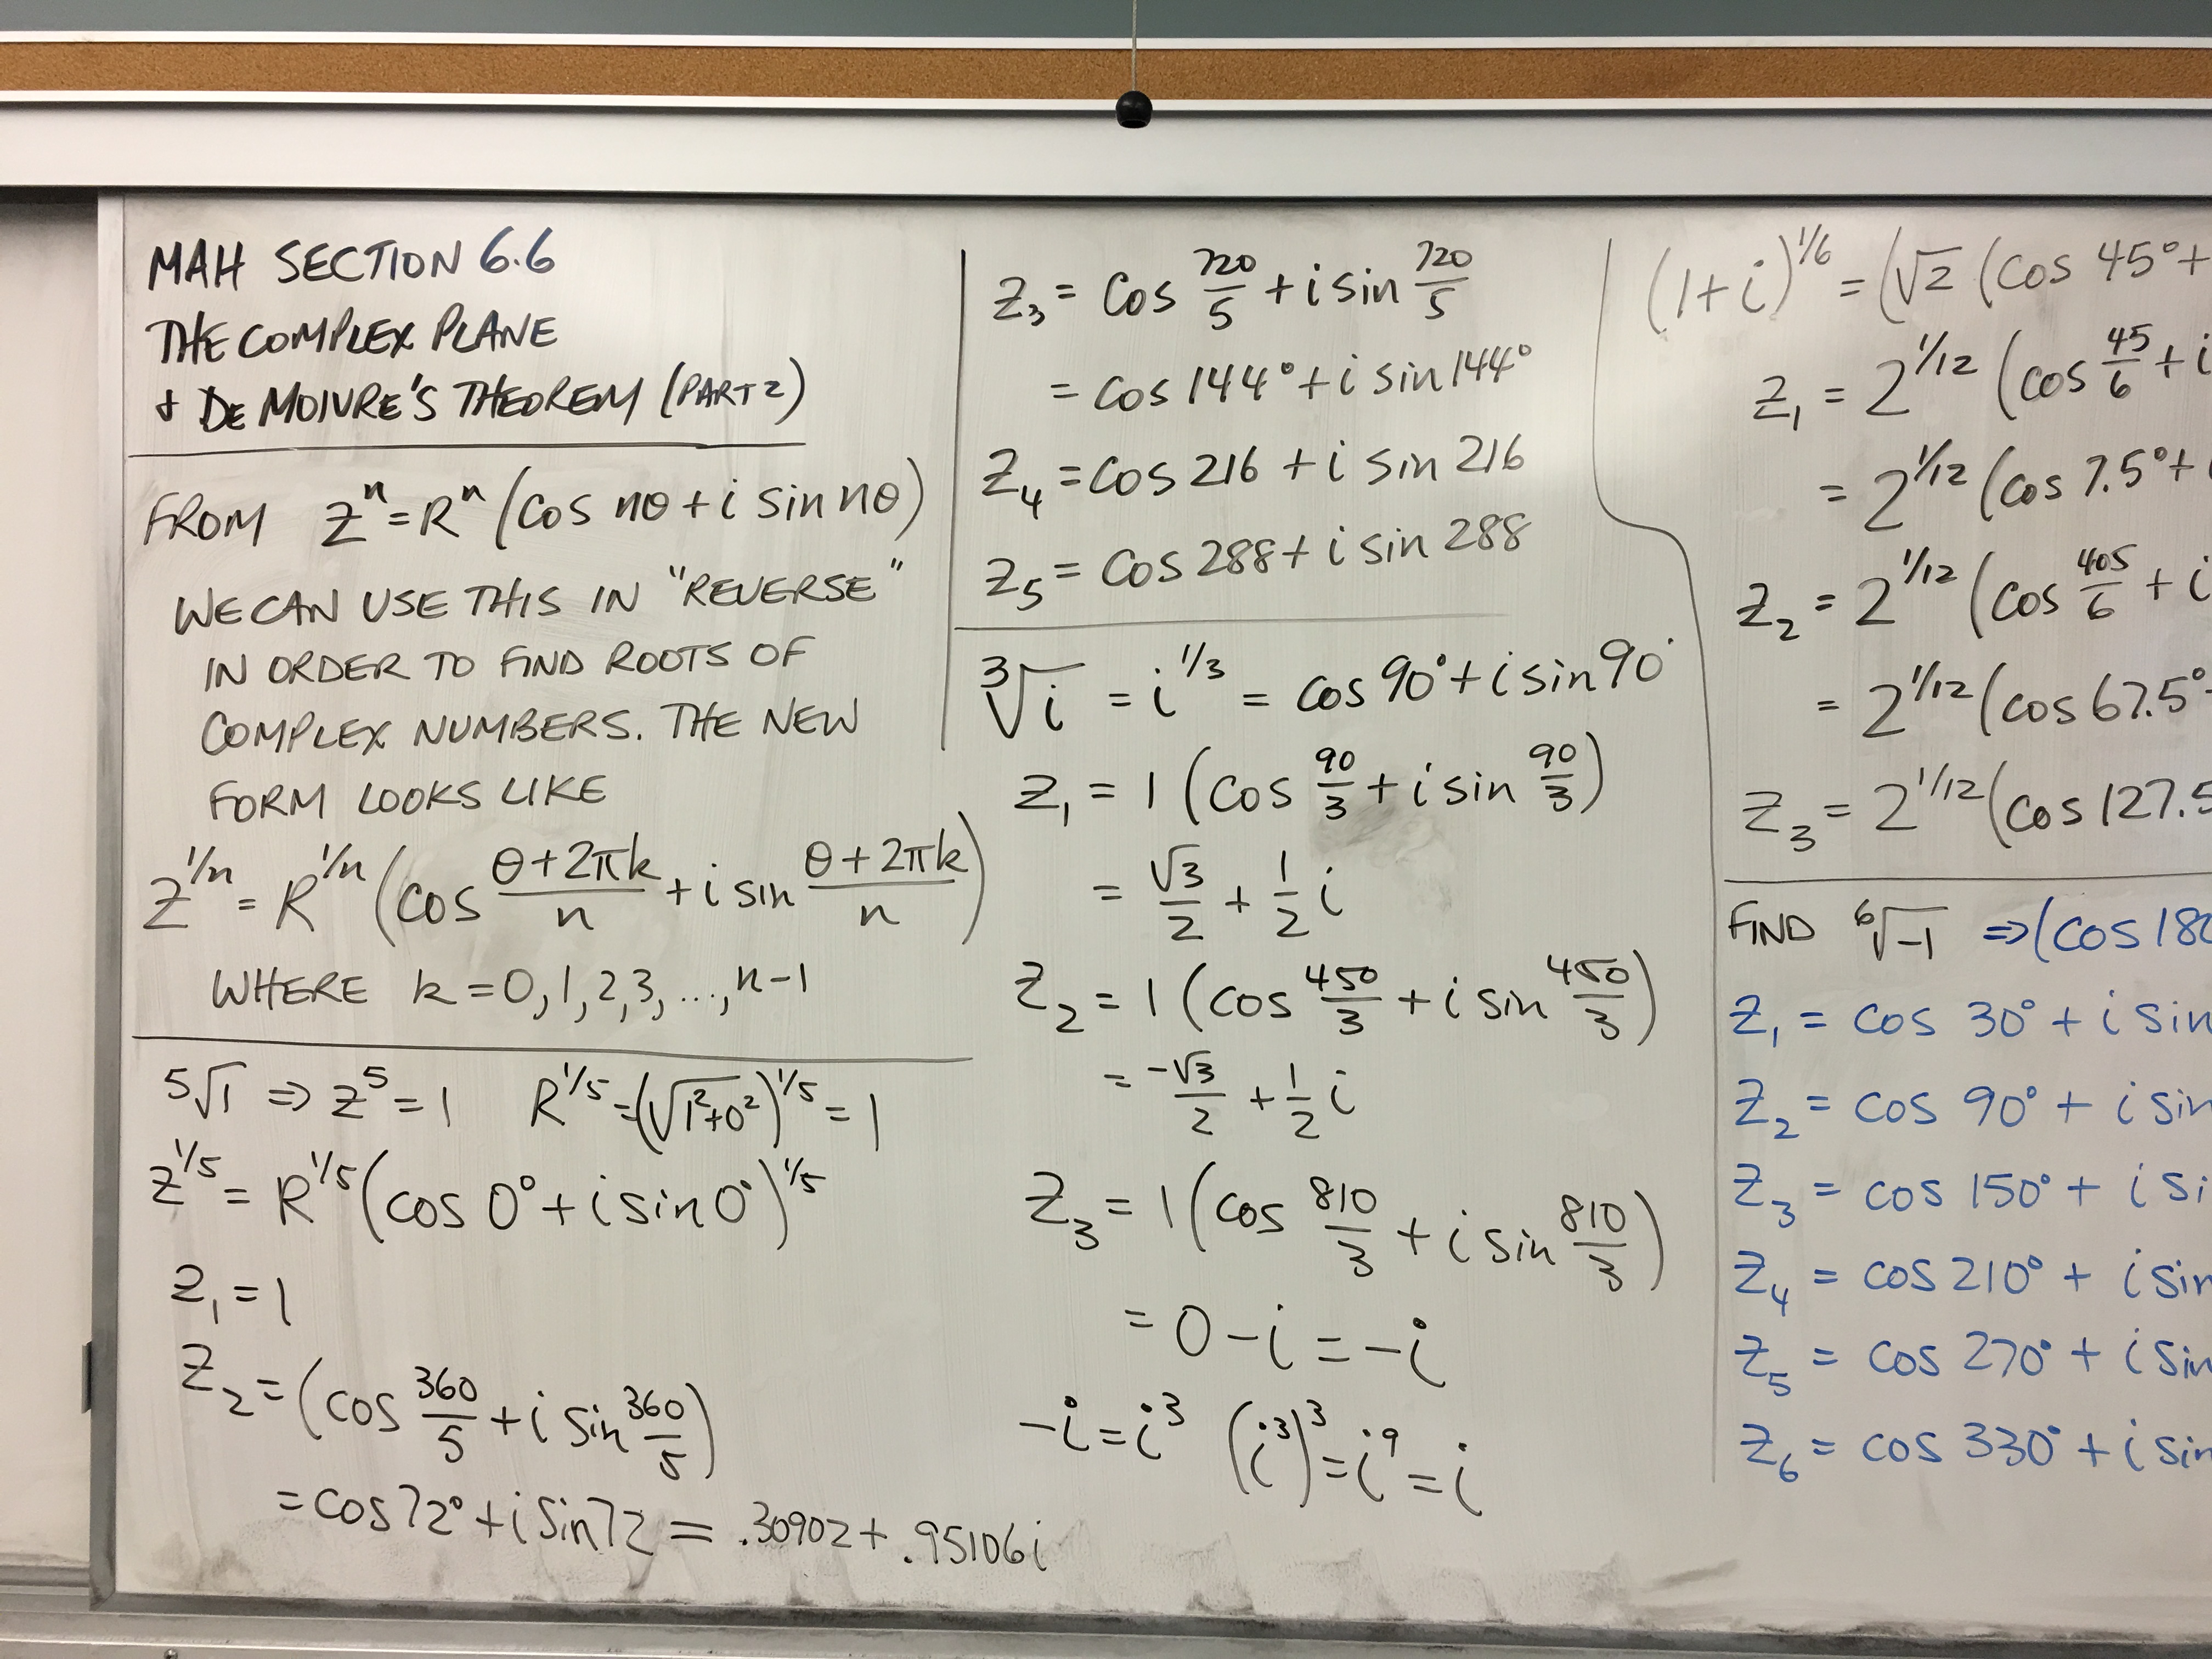 MAH SECTION 6.6
THE COMPLEX PLANE
+ DE MOIVRE'S THEOREM (PART 2)
FROM Z^n = R^n (cos nθ + i sin nθ)
WE CAN USE THIS IN "REVERSE"
IN ORDER TO FIND ROOTS OF
COMPLEX NUMBERS. THE NEW
FORM LOOKS LIKE
Z^1/n = R^1/n (cos (θ+2πk)/n + i sin (θ+2πk)/n)
WHERE k = 0, 1, 2, 3, ..., n-1
5√1 ⇒ Z^5 = 1 R^1/5 = (√1²+0²)^1/5 = 1
Z^1/5 = R^1/5 (cos 0° + i sin 0°)^1/5
Z₁ = 1
Z₂ = (cos 360/5 + i sin 360/5)
= cos 72° + i sin 72 = .30902 + .95106i
Z₃ = cos 720/5 + i sin 720/5
= cos 144° + i sin 144°
Z₄ = cos 216 + i sin 216
Z₅ = cos 288 + i sin 288
³√i = i^1/3 = cos 90° + i sin 90°
Z₁ = 1 (cos 90/3 + i sin 90/3)
= √3/2 + 1/2 i
Z₂ = 1 (cos 450/3 + i sin 450/3)
= -√3/2 + 1/2 i
Z₃ = 1 (cos 810/3 + i sin 810/3)
= 0 - i = -i
-i = i³ (i³)³ = i⁹ = i
(1+i)^1/6 = (√2 (cos 45° +
Z₁ = 2^1/12 (cos 45/6 + i
= 2^1/12 (cos 7.5° +
Z₂ = 2^1/12 (cos 405/6 + i
= 2^1/12 (cos 67.5°
Z₃ = 2^1/12 (cos 127.5
FIND ⁶√-1 ⇒ (cos 180
Z₁ = cos 30° + i sin
Z₂ = cos 90° + i sin
Z₃ = cos 150° + i si
Z₄ = cos 210° + i sin
Z₅ = cos 270° + i sin
Z₆ = cos 330° + i sin